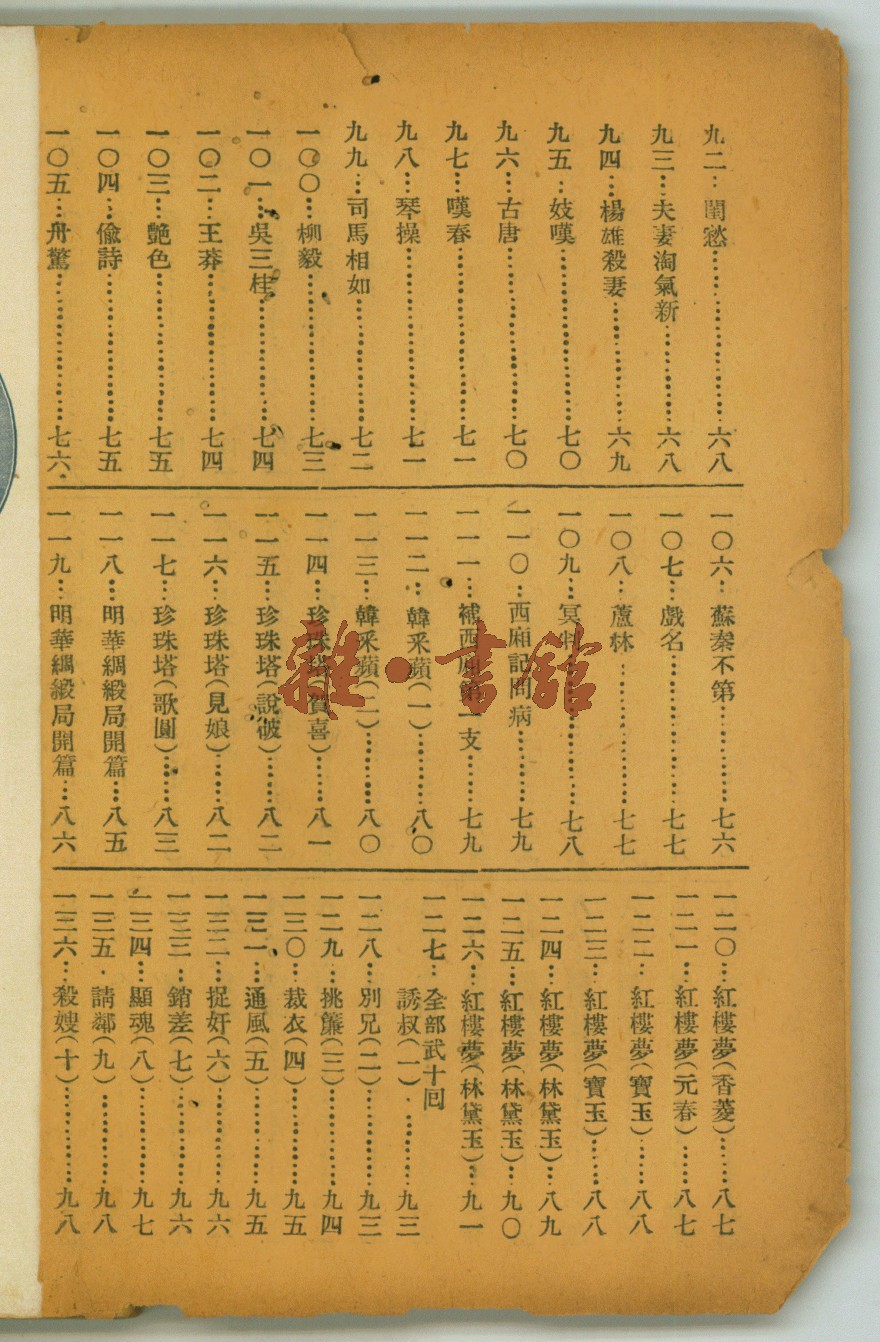 九二…閨愁……………六八
九三…夫妻淘氣新……………六八
九四…楊雄殺妻……………六九
九五…妓嘆……………七〇
九六…古唐……………七〇
九七…嘆春……………七一
九八…琴操……………七一
九九…司馬相如……………七二
一〇〇…柳毅……………七三
一〇一…吳三桂……………七四
一〇二…王莽……………七四
一〇三…艷色……………七五
一〇四…偸詩……………七五
一〇五…舟驚……………七六
一〇六…蘇秦不第……………七六
一〇七…戲名……………七七
一〇八…蘆林……………七七
一〇九…冥……………七八
一一〇…西廂記問病……七九
一一一…補西廂第一支……七九
一一二…韓釆蘋(一)……八〇
一一三…韓釆蘋(二)……八〇
一一四…珍珠塔(賀喜)……八一
一一五…珍珠塔(說破)……八二
一一六…珍珠塔(見娘)……八二
一一七…珍珠塔(歌圓)……八三
一一八…明華綢緞局開篇…八五
一一九…明華綢緞局開篇…八六
一二〇…紅樓夢(香菱)……八七
一二一…紅樓夢(元春)……八七
一二二…紅樓夢(寶玉)……八八
一二三…紅樓夢(寶玉)……八八
一二四…紅樓夢(林黛玉)…八九
一二五…紅樓夢(林黛玉)…九〇
一二六…紅樓夢(林黛玉)…九一
一二七…全部武十回
誘叔(一)……………九三
一二八…別兄(二)……………九三
一二九…挑簾(三)……………九四
一三〇…裁衣(四)……………九五
一三一…通風(五)……………九五
一三二…捉奸(六)……………九六
一三三…銷差(七)……………九六
一三四…顯魂(八)……………九七
一三五…請鄰(九)……………九八
一三六…殺嫂(十)……………九八
雜·書舘